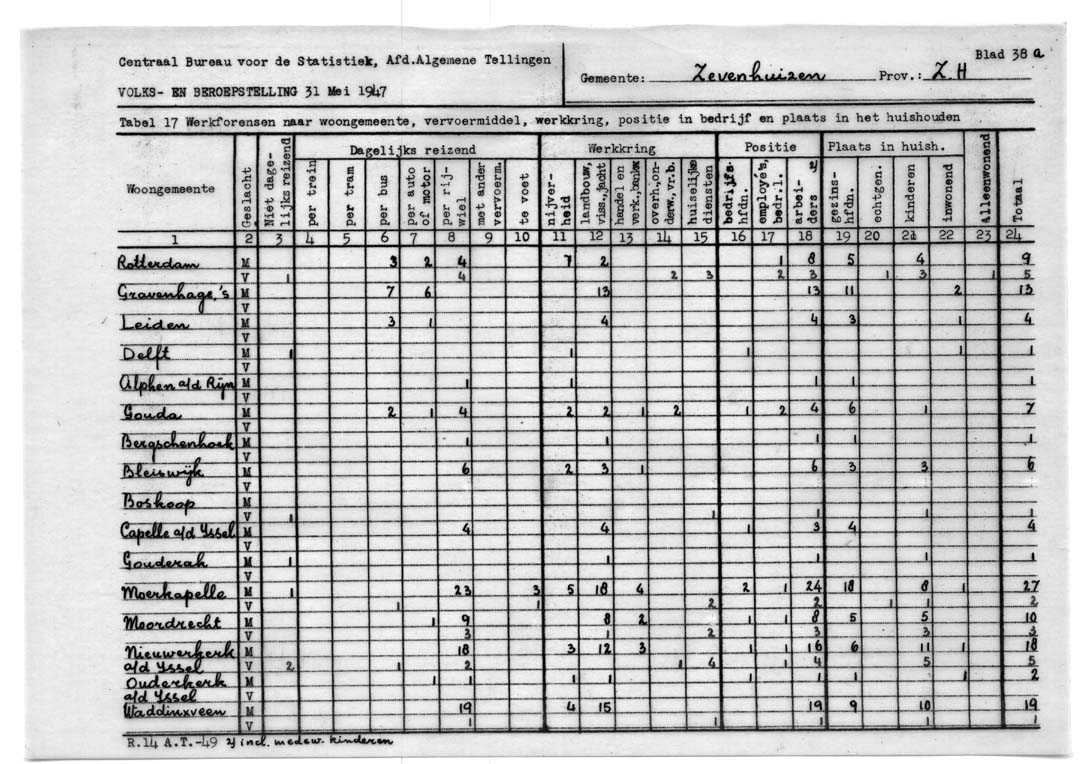 Centraal Bureau voor de Statistiek, Afd.Algemene Tellingen
Gemeente: Zevenhuizen Prov.: Z.H Blad 38 a
VOLKS- EN BEROEPSTELLING 31 Mei 1947
Tabel 17 Werkforensen naar woongemeente, vervoermiddel, werkkring, positie in bedrijf en plaats in het huishouden
Woongemeente | Geslacht | Niet dage-lijks reizend | Dagelijks reizend | Werkkring | Positie | Plaats in huish. | Alleenwonend | Totaal
per trein | per tram | per bus | per auto of motor | per rij-wiel | met ander vervoerm. | te voet | nijver-heid | landbouw, viss.,jacht | handel en verk.,bankw | overh.,on-derw.,vr.b. | huiselijke diensten | bedrijfs-hfdn. | employé's, bedr.l. | arbei-ders 2) | gezins-hfdn. | echtgen. | kinderen | inwonend
1 2 3 4 5 6 7 8 9 10 11 12 13 14 15 16 17 18 19 20 21 22 23 24
Rotterdam M 3 2 4 7 2 1 8 5 4 9
V 1 4 2 3 2 3 1 3 1 5
Gravenhage,'s M 7 6 13 13 11 2 13
V
Leiden M 3 1 4 4 3 1 4
V
Delft M 1 1 1 1 1
V
Alphen a/d Rijn M 1 1 1 1 1
V
Gouda M 2 1 4 2 2 1 2 1 2 4 6 1 7
V
Bergschenhoek M 1 1 1 1 1
V
Bleiswijk M 6 2 3 1 6 3 3 6
V
Boskoop M
V 1 1 1 1 1
Capelle a/d Yssel M 4 4 1 3 4 4
V
Gouderak M 1 1 1 1 1
V
Moerkapelle M 1 23 3 5 18 4 2 1 24 18 8 1 27
V 1 1 2 2 1 1 2
Moordrecht M 1 9 8 2 1 1 8 5 5 10
V 3 1 2 3 3 3
Nieuwerkerk M 18 3 12 3 1 1 16 6 11 1 18
a/d Yssel V 2 1 2 1 4 1 4 5 5
Ouderkerk M 1 1 1 1 1 1 1 1 2
a/d Yssel V
Waddinxveen M 19 4 15 19 9 10 19
V 1 1 1 1 1
R.14 A.T.-49 2) incl. medew. kinderen